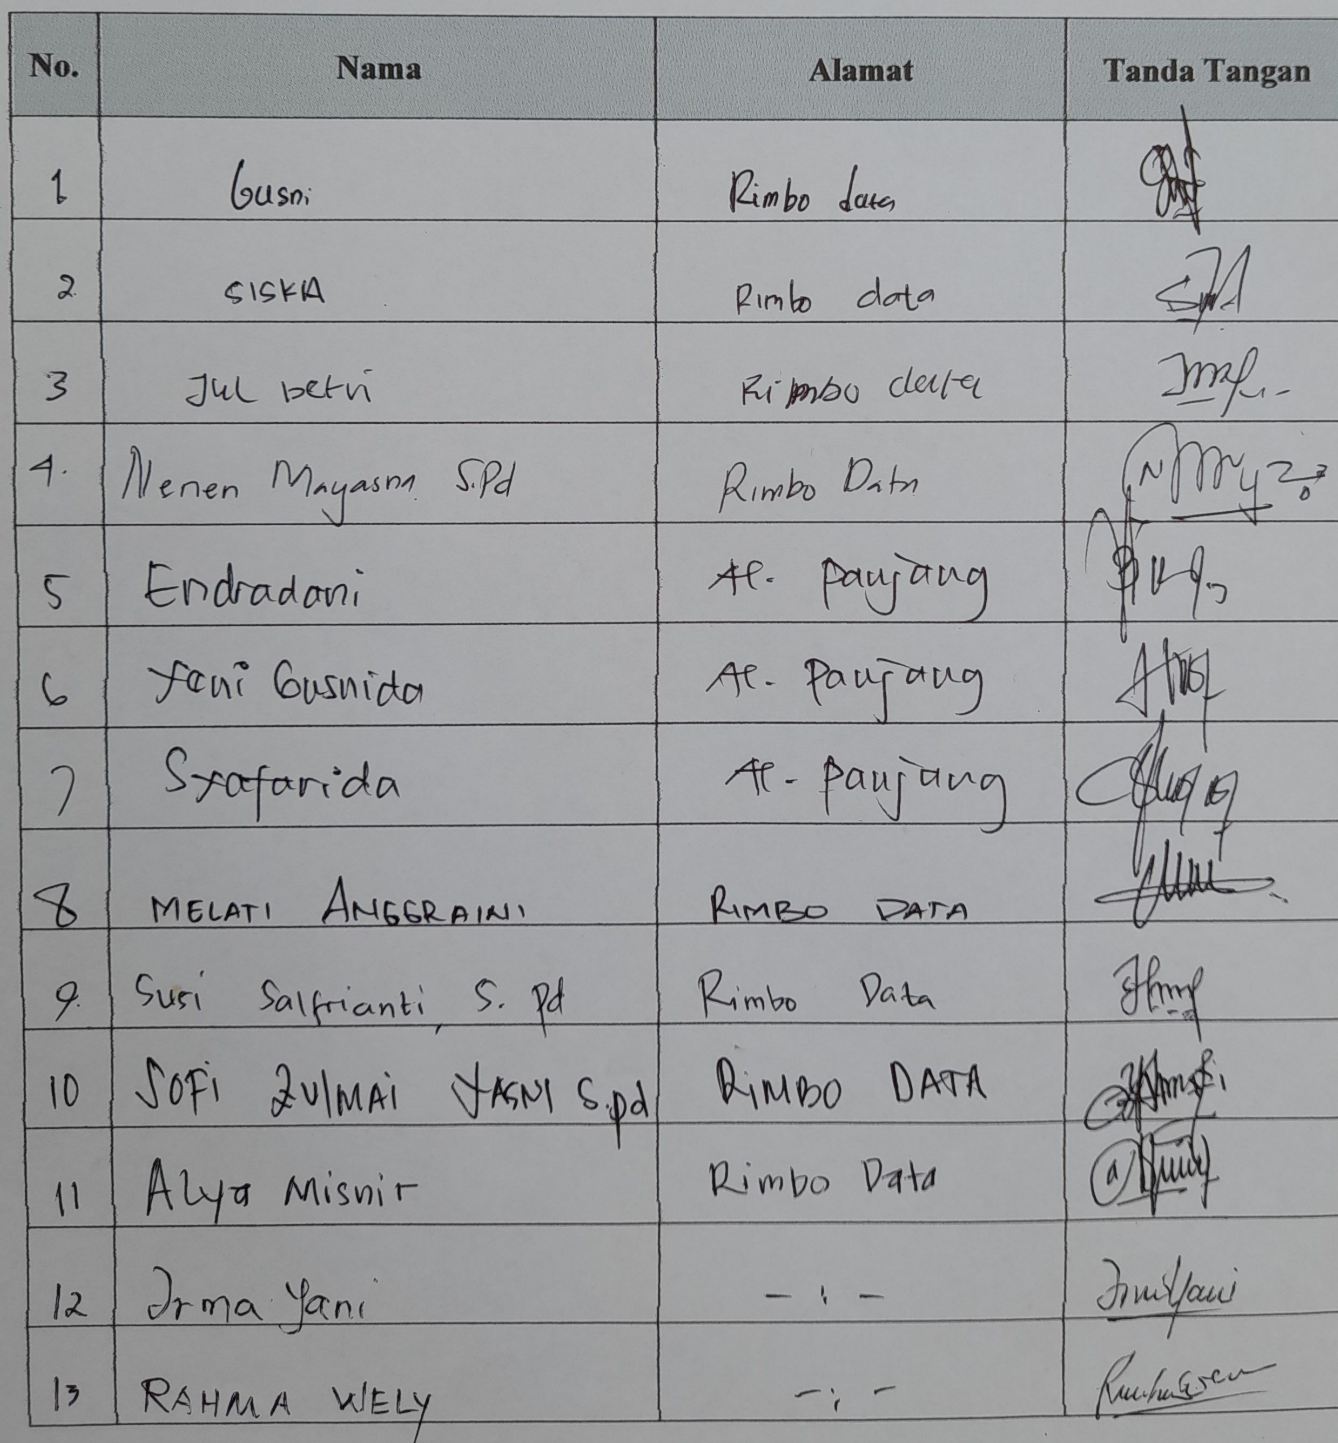 No. Nama Alamat Tanda Tangan
1 Gusni Rimbo data
2 SISKA Rimbo data
3 Jul betri Rimbo data
4. Nenen Mayasna S.Pd Rimbo Data
5 Endradani Al. Panjang
6 Yani Gusnida Al. Panjang
7 Syafarida Al. Panjang
8 MELATI ANGGRAINI RIMBO DATA
9. Susi Salfrianti, S. Pd Rimbo Data
10 SOFi ZulMAi YASNI S.pd RiMBO DATA
11 Alya Misnir Rimbo Data
12 Irma Yani - : -
13 RAHMA WELY - : -